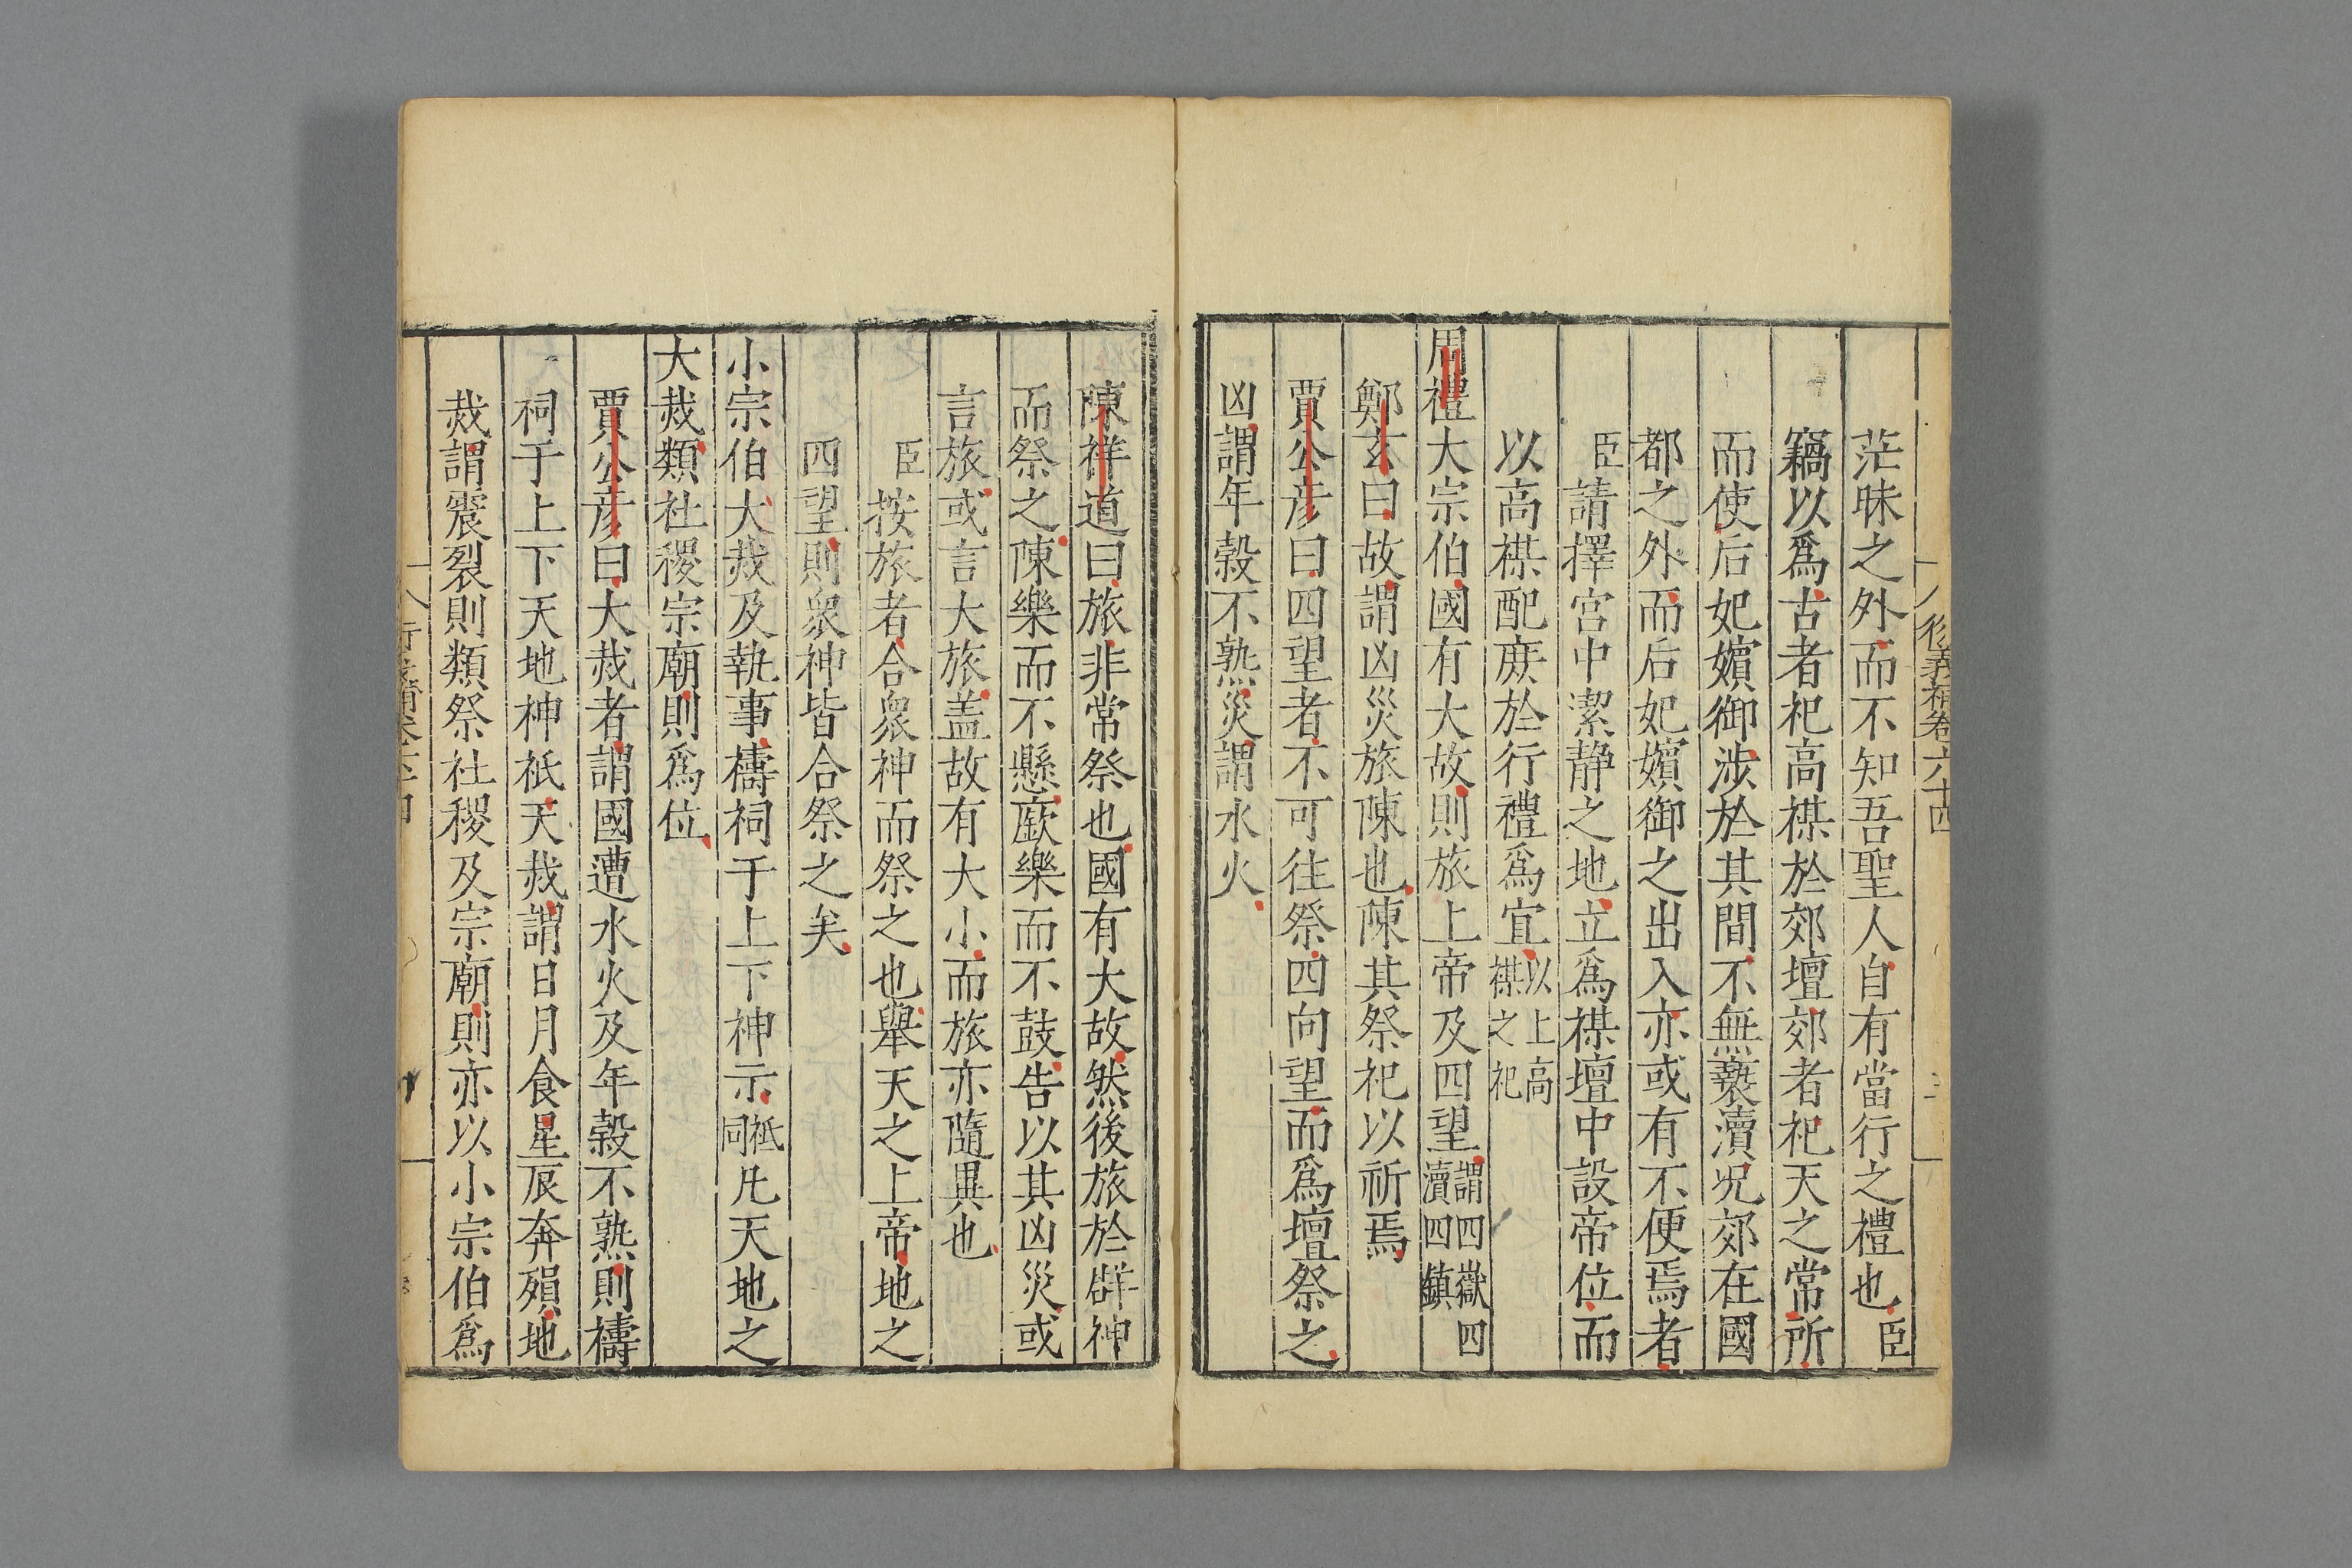 衍義補卷六十四
茫昧之外而不知吾聖人自有當行之禮也臣
竊以爲古者祀高禖於郊壇郊者祀天之常所
而使后妃嬪御涉於其間不無褻瀆况郊在國
都之外而后妃嬪御之出入亦或有不便焉者
臣請擇宫中潔静之地立爲禖壇中設帝位而
以高禖配庻於行禮爲宜以上高禖之祀
周禮大宗伯國有大故則旅上帝及四望謂四嶽四瀆四鎮
鄭玄曰故謂凶災旅陳也陳其祭祀以祈焉
賈公彦曰四望者不可往祭四向望而爲壇祭之
凶謂年榖不熟災謂水火
陳祥道曰旅非常祭也國有大故然後旅於群神
而祭之陳樂而不懸廞樂而不鼓告以其凶災或
言旅或言大旅盖故有大小而旅亦隨異也
臣按旅者合衆神而祭之也舉天之上帝地之
四望則衆神皆合祭之矣
小宗伯大烖及執事禱祠于上下神示祗同凡天地之
大烖類社稷宗廟則爲位
賈公彦曰大烖者謂國遭水火及年榖不熟則禱
祠于上下天地神祇天烖謂日月食星辰奔殞地
烖謂震裂則類祭社稷及宗廟則亦以小宗伯爲